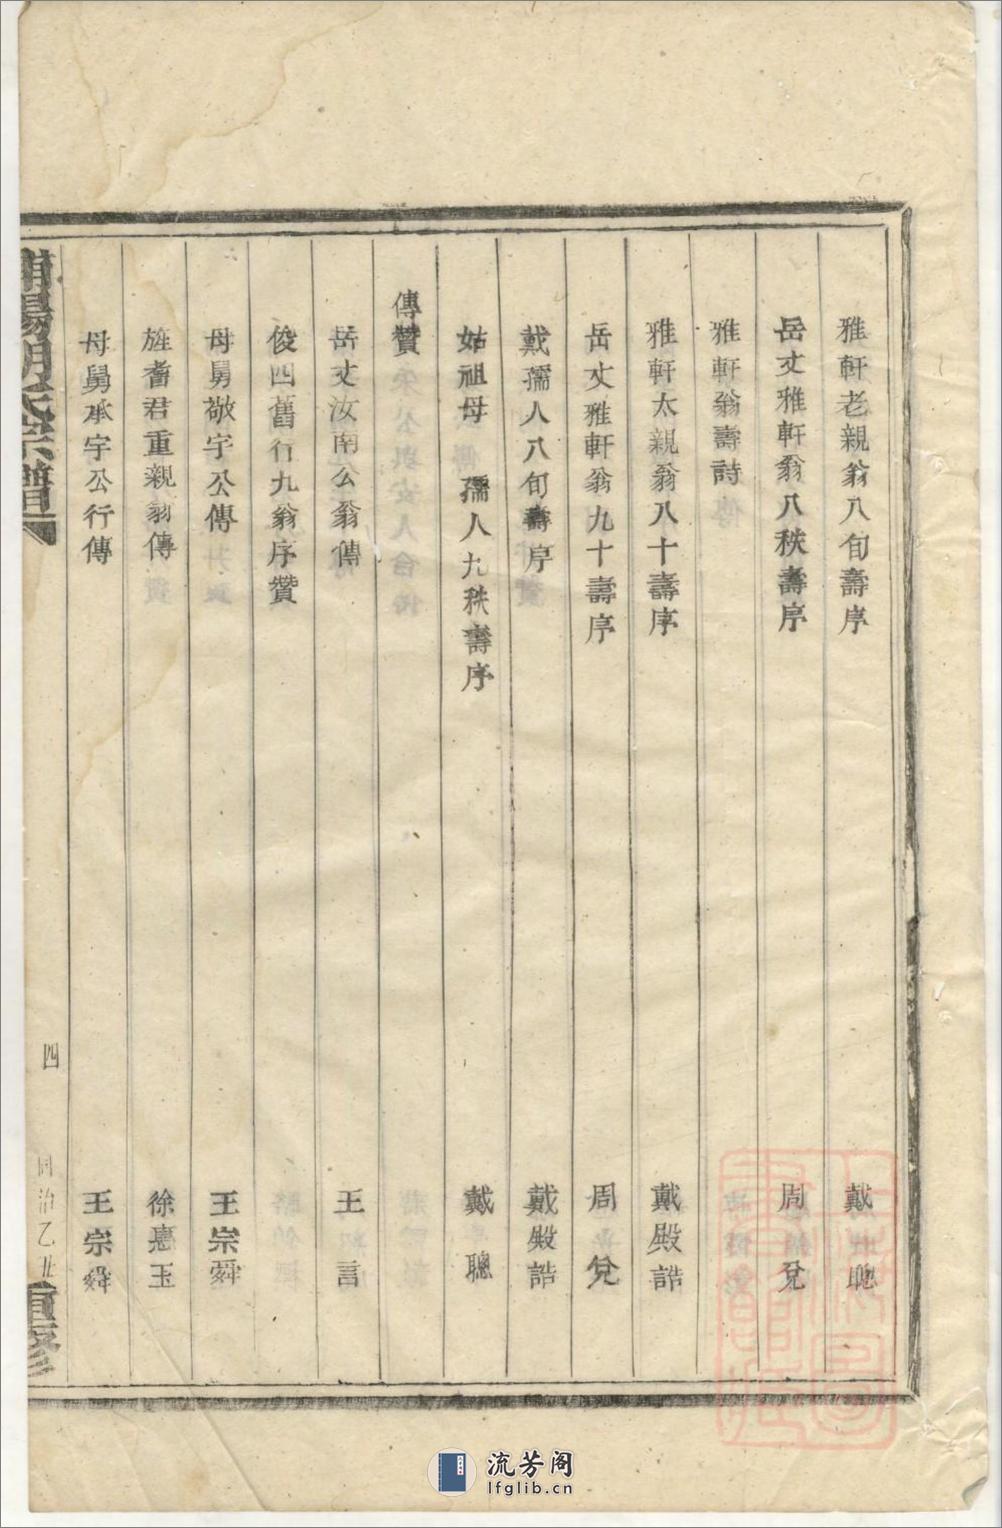 雅軒老親翁八旬壽序 戴聰
岳丈雅軒翁八秩壽序 周兌
雅軒翁壽詩
雅軒太親翁八十壽序 戴殿誥
岳丈雅軒翁九十壽序 周兌
戴孺人八旬壽序 戴殿誥
姑祖母 孺人九秩壽序 戴聰
傳贊
岳丈汝南公翁傳 王言
俊四舊行九翁序贊
母舅敬宇公傳 王宗舜
旌耆君重親翁傳 徐憙玉
母舅承宇公行傳 王宗舜
浦陽胡氏宗譜
四
同治乙丑
重修
流芳阁
lfglib.cn